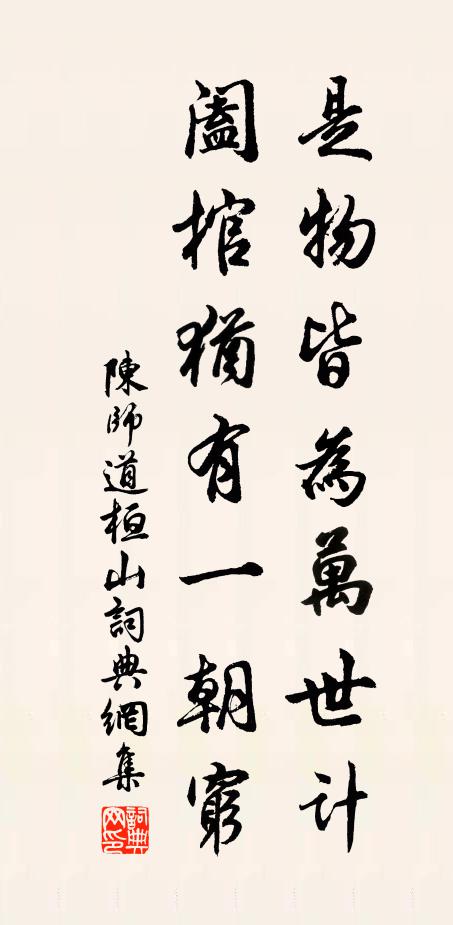 是物皆為萬世計
闔棺猶有一朝窮
陳師道桓山詞典網集
詞典網印